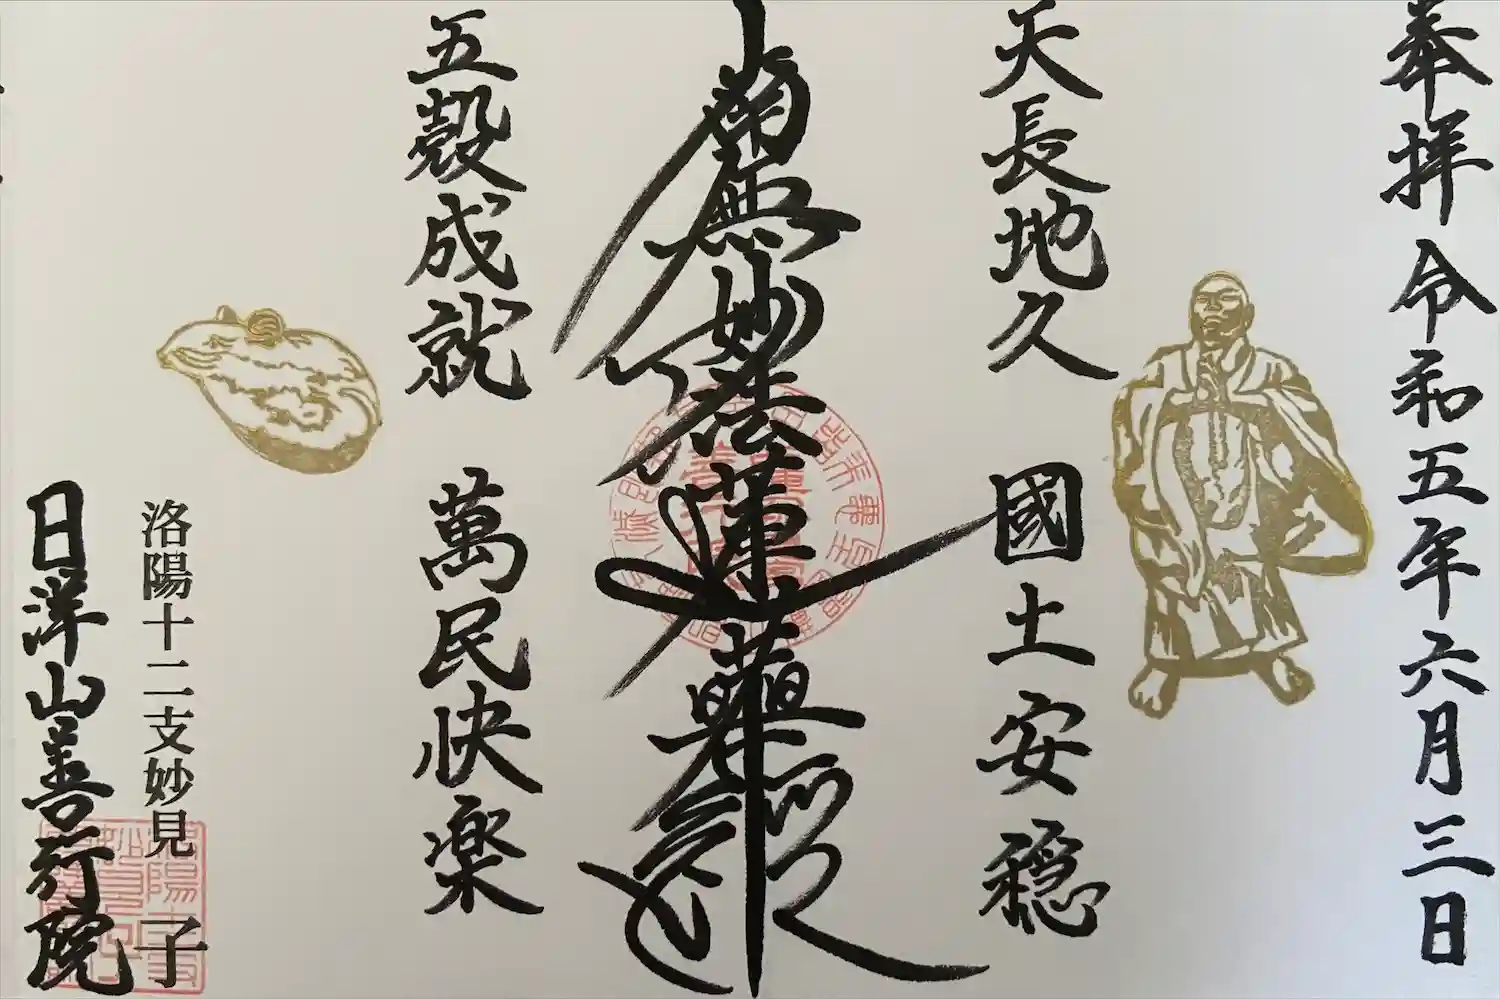 奉拝 令和五年六月三日
天長地久 國土安穏
南無妙法蓮華經
五穀成就 萬民快楽
洛陽十二支妙見 子
日洋山善行院